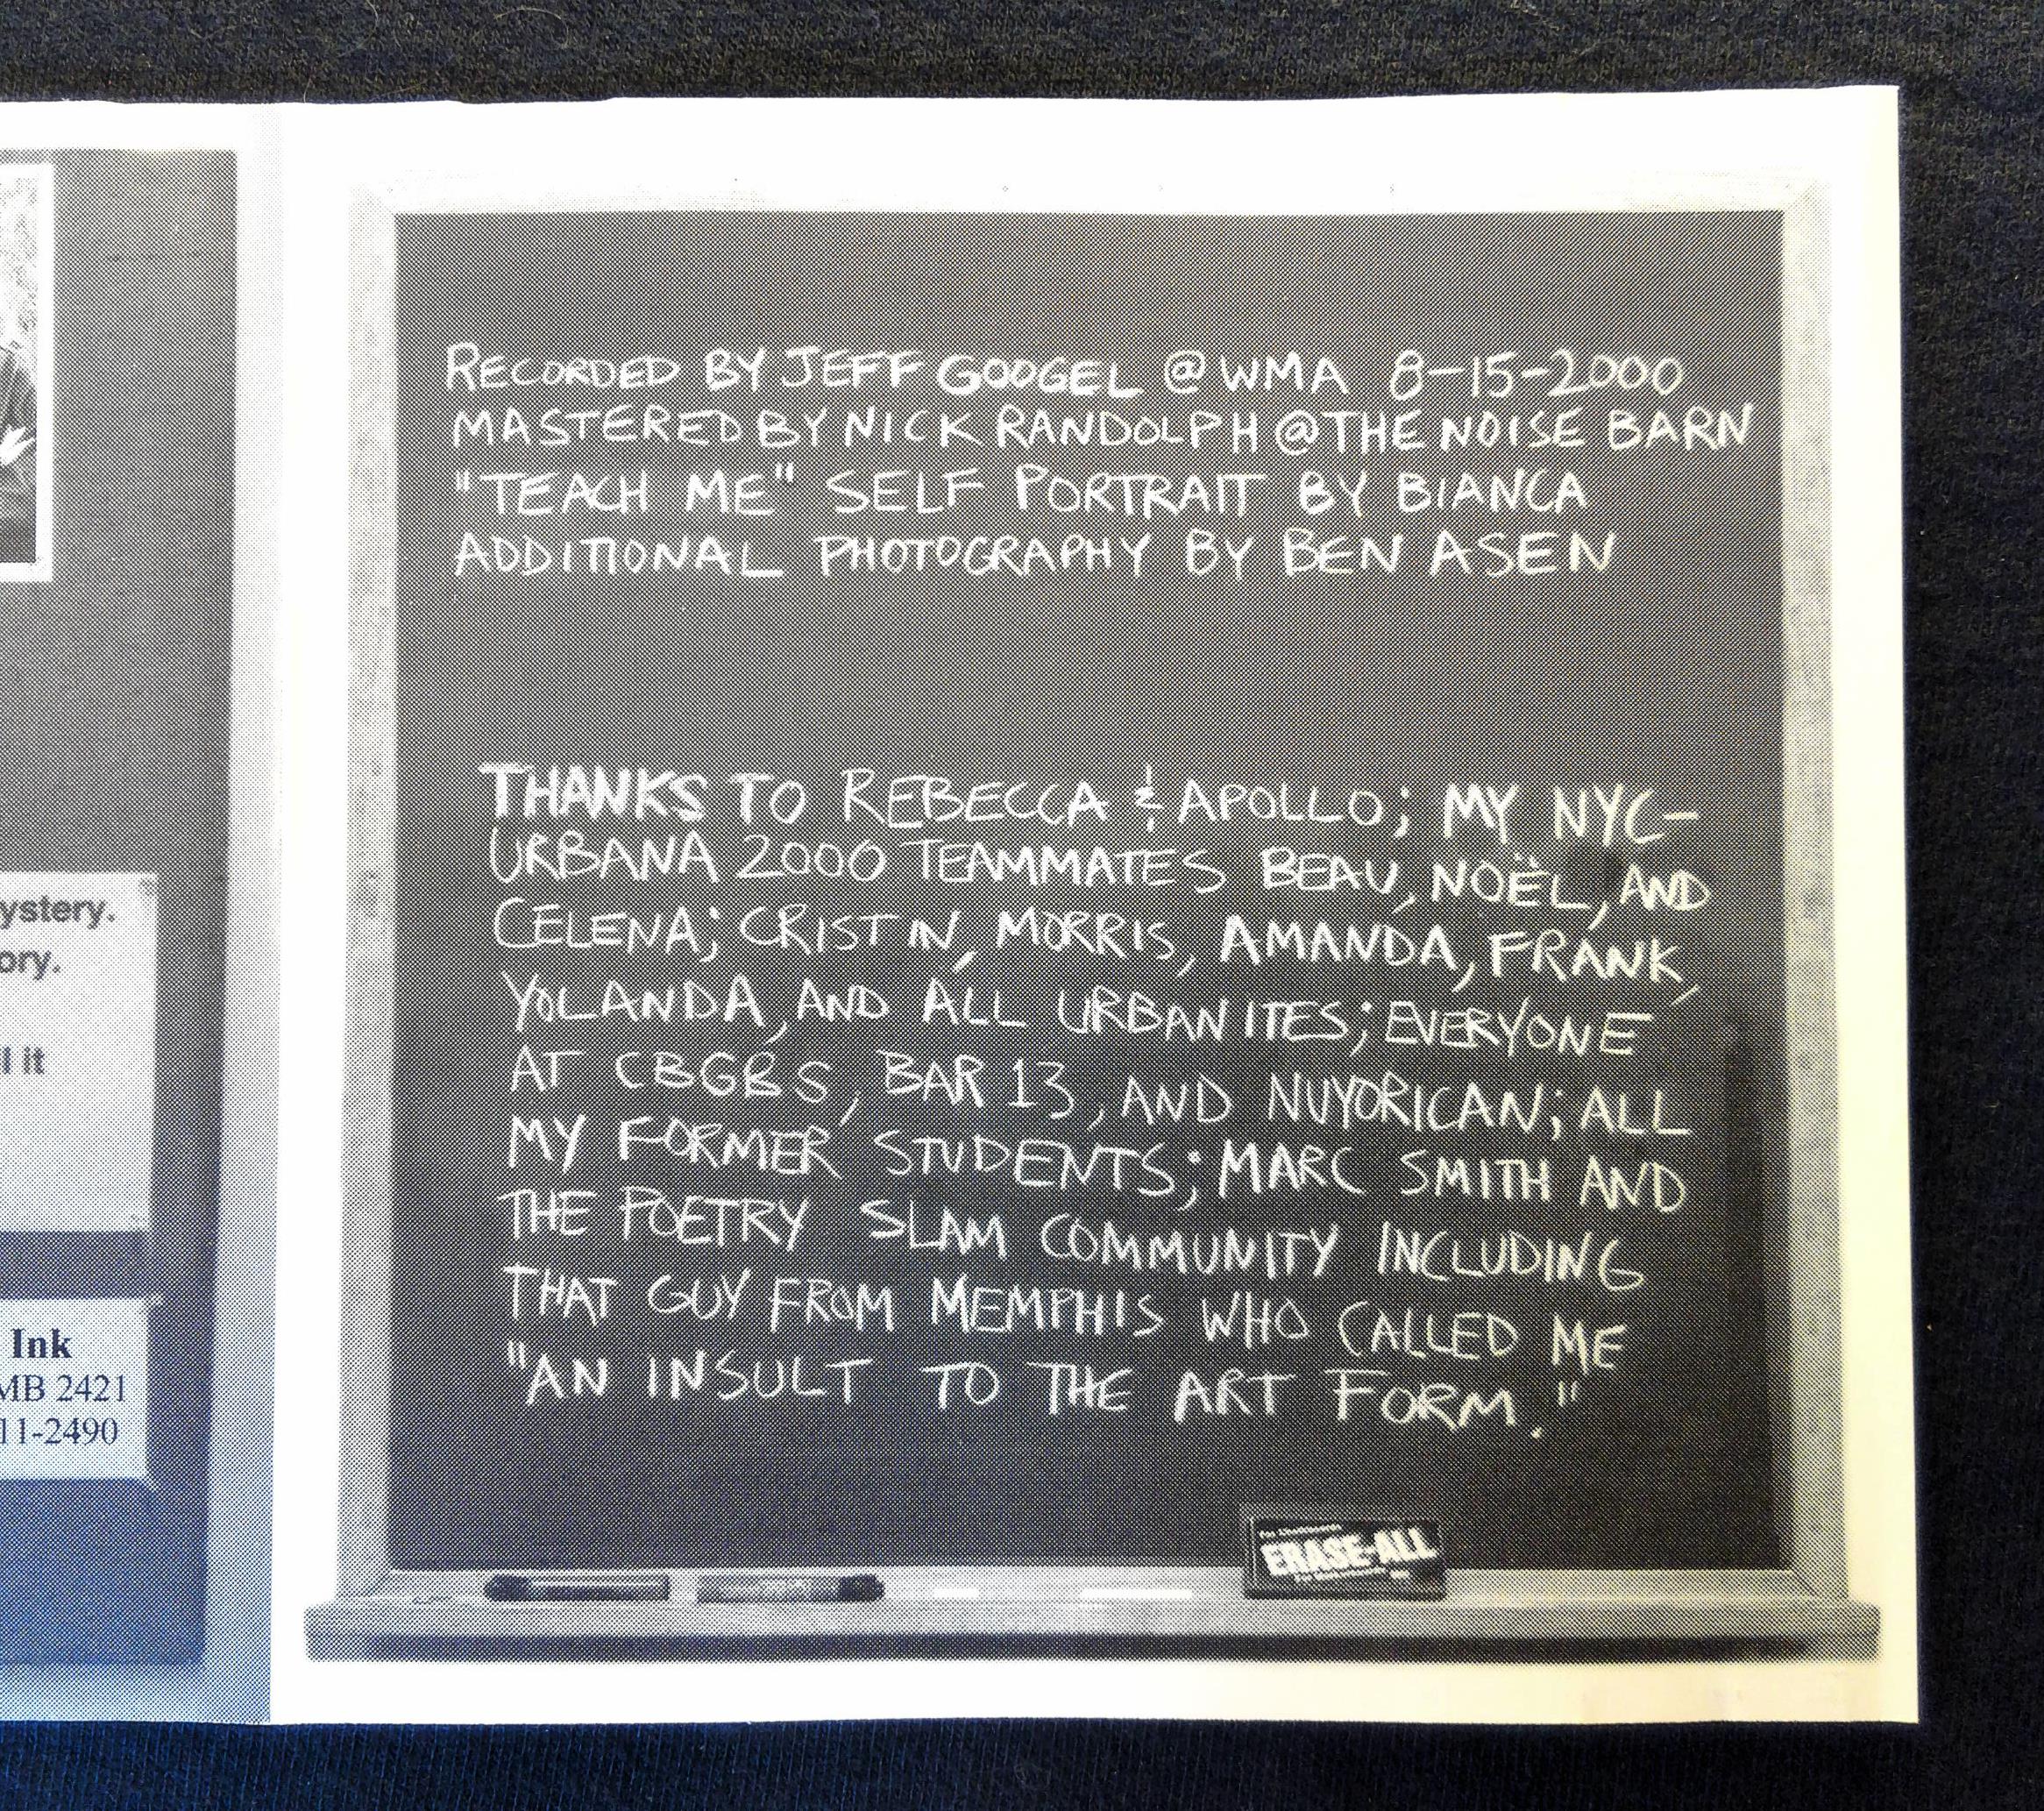 ystery.
ory.
l it
Ink
MB 2421
11-2490
RECORDED BY JEFF GOOGEL @ WMA 8-15-2000
MASTERED BY NICK RANDOLPH @ THE NOISE BARN
"TEACH ME" SELF PORTRAIT BY BIANCA
ADDITIONAL PHOTOGRAPHY BY BEN ASEN
THANKS TO REBECCA & APOLLO; MY NYC-
URBANA 2000 TEAMMATES BEAU, NOËL, AND
CELENA; CRISTIN, MORRIS, AMANDA, FRANK,
YOLANDA, AND ALL URBANITES; EVERYONE
AT CBGBS, BAR 13, AND NUYORICAN; ALL
MY FORMER STUDENTS; MARC SMITH AND
THE POETRY SLAM COMMUNITY INCLUDING
THAT GUY FROM MEMPHIS WHO CALLED ME
"AN INSULT TO THE ART FORM."
ERASE-ALL